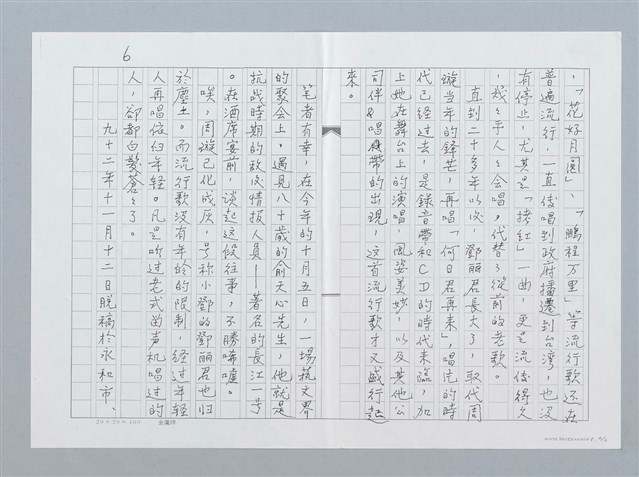 ，「花好月圓」、「鵬程万里」等流行歌还在
普遍流行，一直傳唱到政府播遷到台湾，也没
有停止，尤其是「拷紅」一曲，更是流傳得久
，我々乎人々会唱，代替了從前的老歌。
直到二十多年以後，鄧麗君長大了，取代周
璇当年的鋒芒，再唱「何日君再来」，唱片的時
代已経过去，是錄音帶和CD的時代来臨，加
上她在舞台上的演唱，風姿美妙，以及其他公
司伴唱帶的出現，这首流行歌才又盛行起
來。
笔者有幸，在今年的十月五日，一場藝文界
的聚会上，遇見八十歲的俞天心先生，他就是
抗战時期的敌後情报人員—著名的長江一号
。在酒席宴前，談起这段往事，不勝唏噓。
唉，周璇已化成灰，号称小鄧的鄧麗君也归
於塵土。而流行歌没有年齡的限制，経过年轻
人再唱依旧年轻。凡是听过老式留声机唱过的
人，卻都白髮蒼々了。
九十二年十一月十二日脱稿於永和市、
6
20×20=400